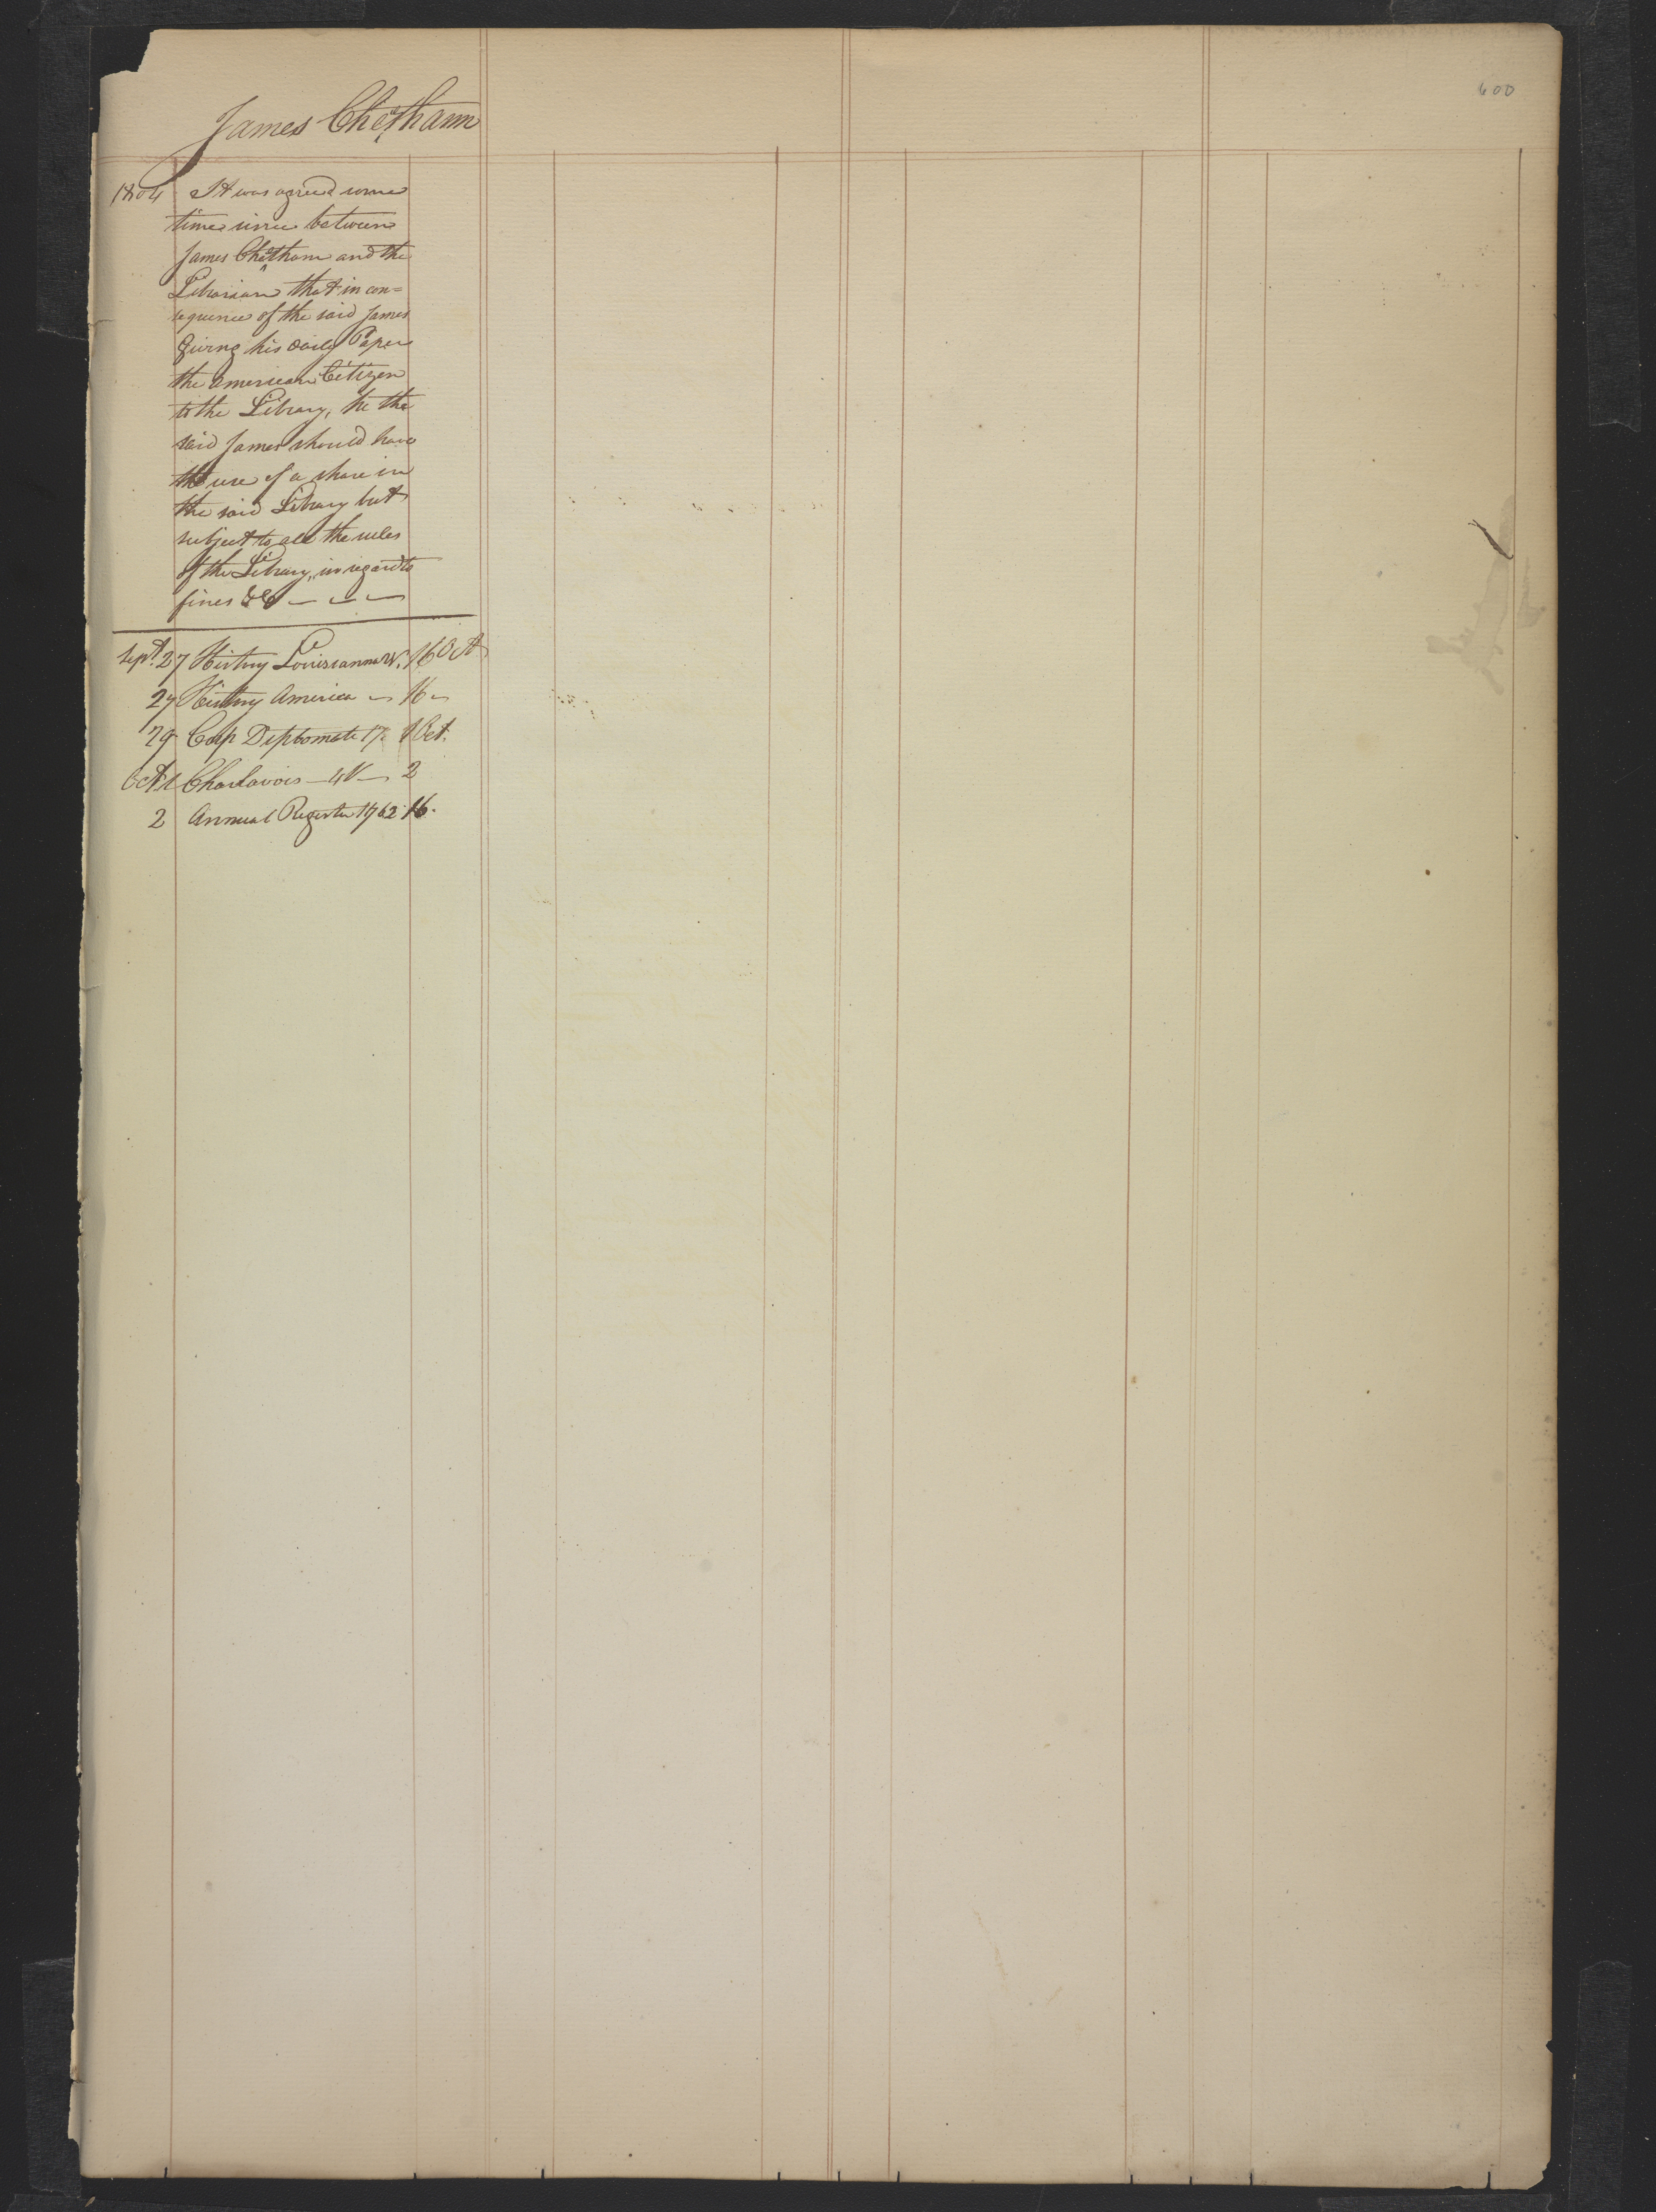 600
James Cheethamm
1804 It was agreed some
time since between
James Cheetham and the
Librarian that in con=
sequence of the said James
Giving his daily Paper
the American Citizen
to the Library, he the
said James should have
the use of a share in
the said Library but
subject to all the rules
of the Library, in regard to
fines &c — — —
Sept. 27 History Louisianna 16 Oct
27 History America — 16 —
29 Corp Diplomate 1 Oct.
Oct 1 Charlavoix — 4V — 2
2 Annual Register 1762 16.